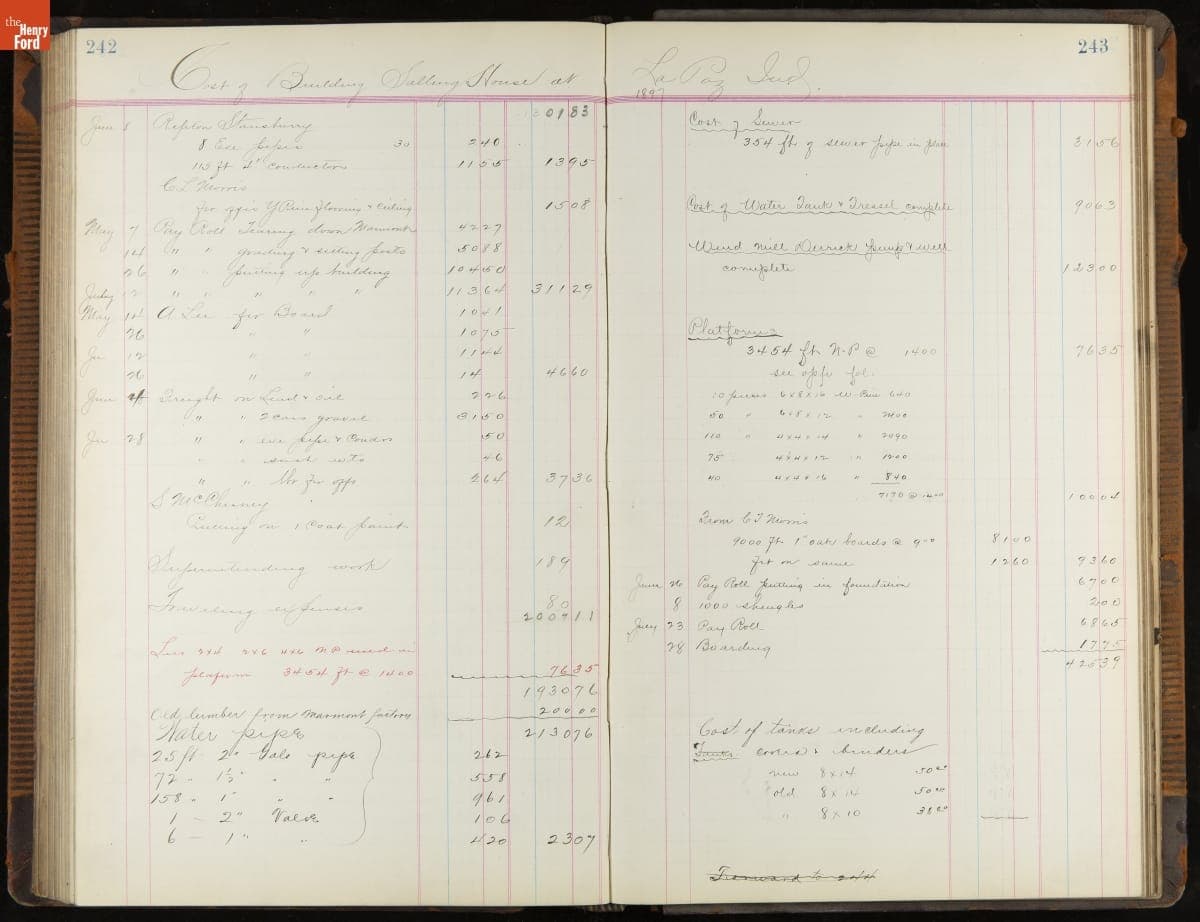 the Henry Ford
242
Cost of Building Salting House at
13 0183
June 8 Repton Stansburry
8 Exe pipes 30 240
115 ft 4" conductors 1155 1395
C L Morris
for Y Pine flooring & ceiling 1508
May 7 Pay Roll Tearing down Marmont 4227
14 " " grading & setting posts 5088
26 " " putting up building 10450
July 12 " " " " " 11364 31129
May 14 A Lee for Board 1041
26 " " 1075
Ju 12 " " 1144
26 " " 14 4660
June Freight on Lead & oil 226
" " 2 cars gravel 3150
Ju 28 " " exe pipe & Condos 50
" " sash wts 46
" " 264 3736
S McChesney
Putting on 1 coat paint 12
Superintending work 189
Traveling expenses 80
200711
Less 2x4 2x6 4x6 N P used in
platform 3454 ft @ 1400 7635
193076
Old lumber from Marmont factory 20000
Water pipe 213076
25 ft 2" Galv pipe 262
72 " 1½" " " 558
158 " 1" " " 961
1 - 2" Valve 106
6 - 1" " 420 2307
243
La Paz Ind.
1897
Cost of Sewer
354 ft of sewer pipe in place 3156
Cost of Water Tank & Tressel complete 9063
Wind mill Derrick pump & well
complete 12300
Platforms
3454 ft N.P @ 1400 7635
see opp fol.
10 pieces 6x8x16 W Pine 640
50 " 6x8x12 " 2400
110 " 4x4x14 " 2090
75 " 4x4x12 " 1200
40 4x4x16 " 840
7170 @ 1400 10004
From C L Morris
9000 ft 1" oak boards @ 900 8100
frt on same 1260 9360
June 26 Pay Roll putting in foundation 6700
8 1000 shingles 200
July 23 Pay Roll 6865
28 Boarding 1775
42539
Cost of tanks including
Tanks covers & binders
new 8x14 5000
old 8x14 5000
" 8x10 3800
Forward to 244